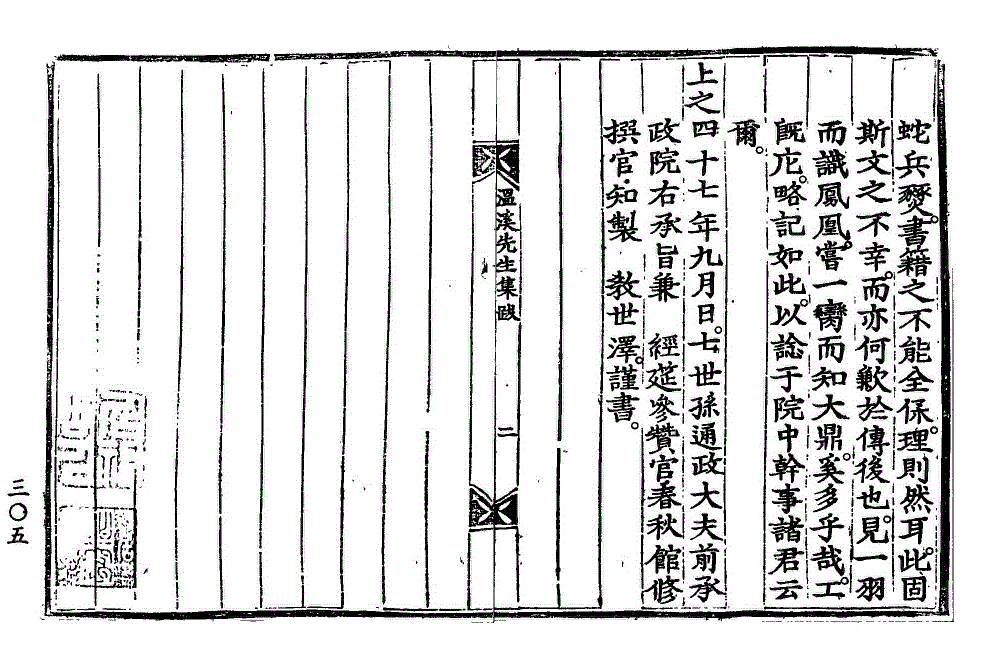 蛇兵燹。書籍之不能全保。理則然耳。此固
斯文之不幸。而亦何歉於傳後也。見一羽
而識鳳凰。嘗一臠而知大鼎。奚多乎哉。工
旣庀。略記如此。以諗于院中幹事諸君云
爾。
上之四十七年九月日。七世孫通政大夫前承
政院右承旨兼 經筵參贊官春秋館修
撰官知製 敎世澤。謹書。
溫溪先生集跋
二
三〇五